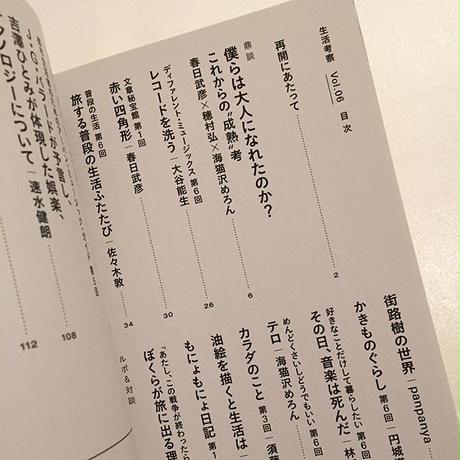 生活考察 Vol.06 目次
再開にあたって
2
鼎談
僕らは大人になれたのか？
これからの“成熟”考
春日武彦×穂村弘×海猫沢めろん
6
ディファレント・ミュージックス 第6回
レコードを洗う｜大谷能生
26
文章秘宝館 第1回
赤い四角形｜春日武彦
30
普段の生活 第6回
旅する普段の生活ふたたび｜佐々木敦
34
街路樹の世界｜panpanya
かきものぐらし 第6回｜円城
好きなことだけして暮らしたい 第6回
その日、音楽は死んだ｜林
めんどくさいしどうでもいい 第6回
テロ｜海猫沢めろん
カラダのこと 第3回｜須藤
油絵を描くと生活は
もにょもにょ日記 第1
ルポ＆対談
「あたし、この戦争が終わったら
ぼくらが旅に出る理
108
J・G・バラードが予言し、
吉澤ひとみが体現した娯楽、
ノロジーについて｜速水健朗
112